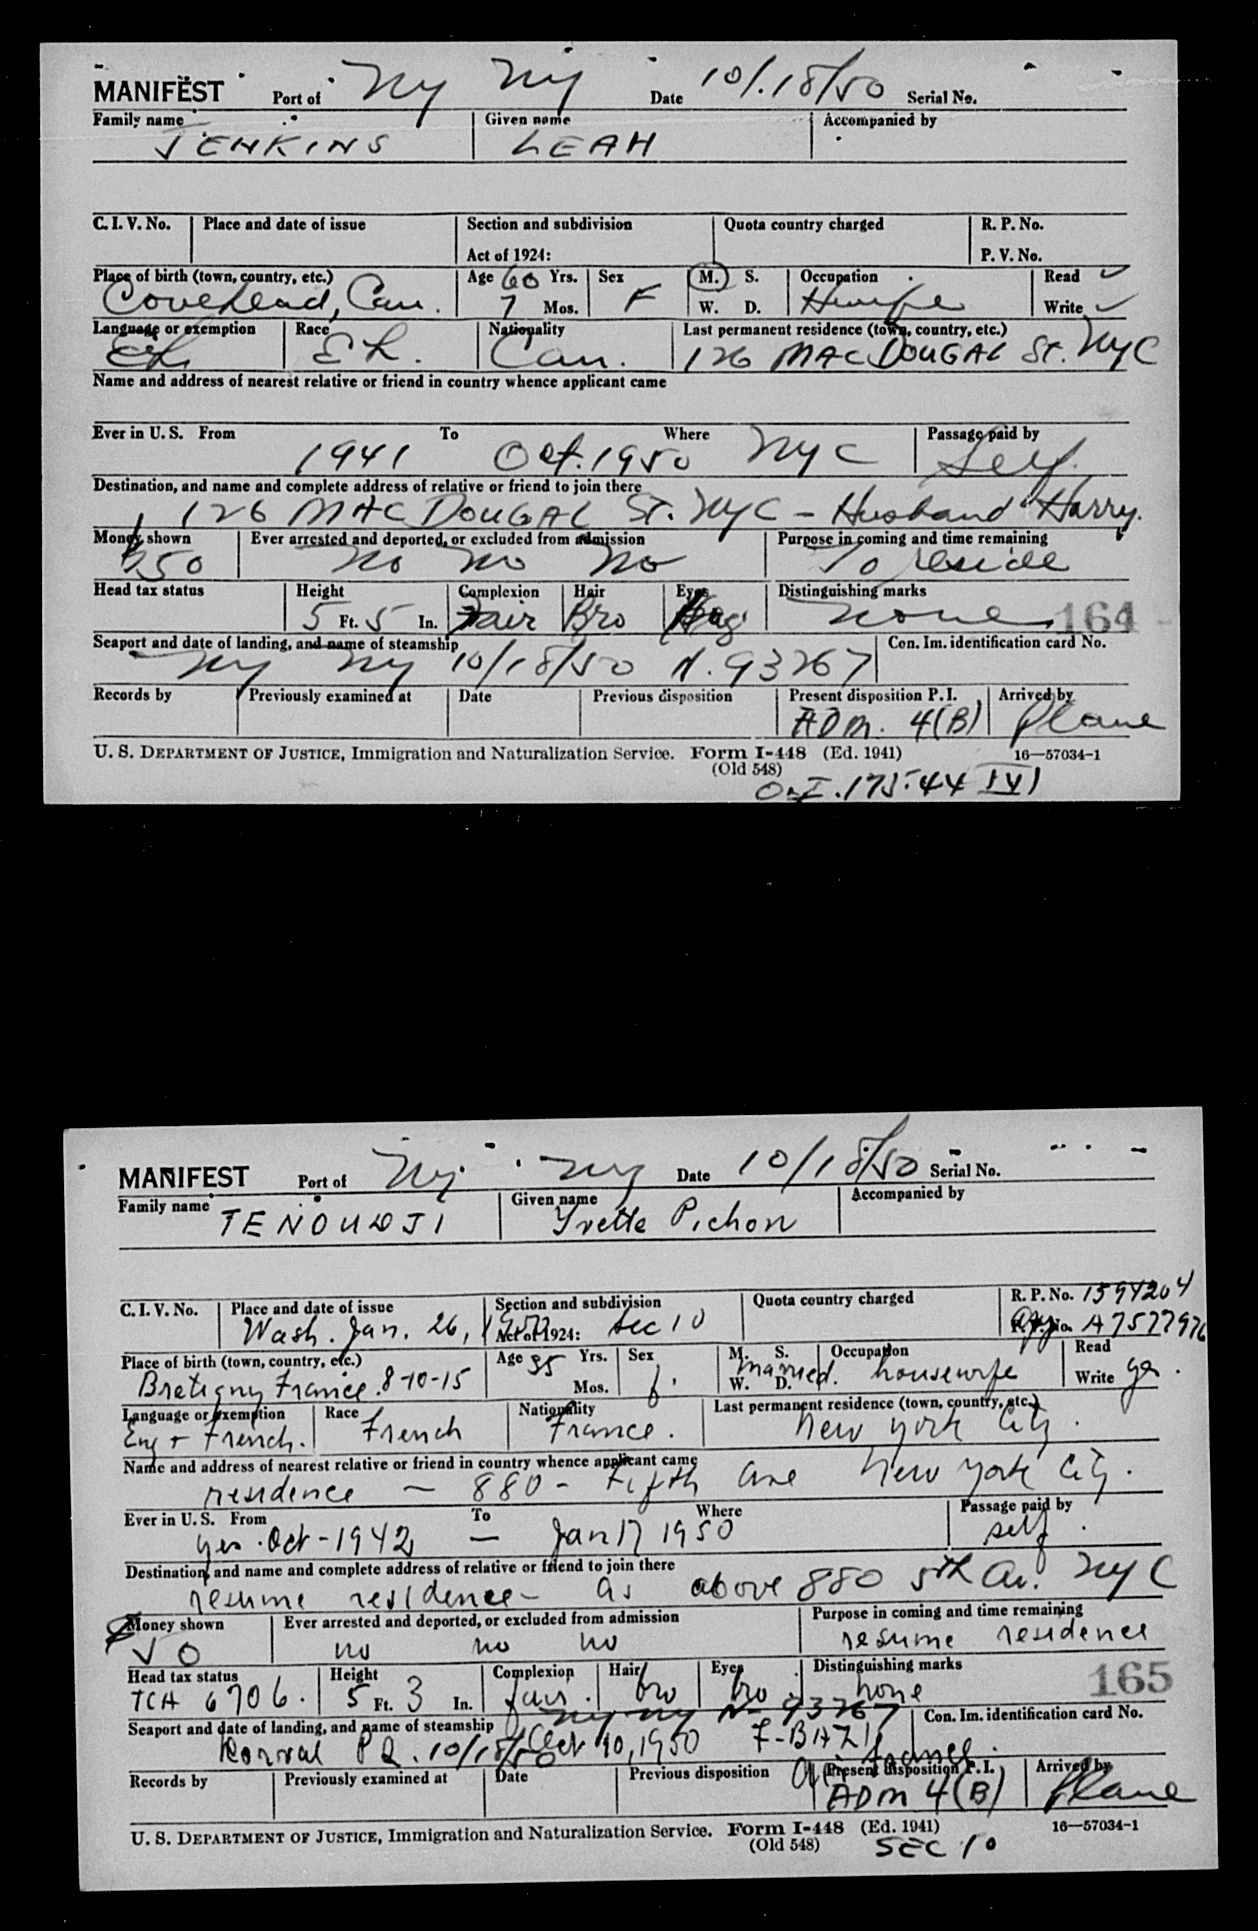 MANIFEST Port of NY NY Date 10/18/50 Serial No.
Family name Given name Accompanied by
JENKINS LEAH
C. I. V. No. Place and date of issue Section and subdivision Quota country charged R. P. No.
Act of 1924: P. V. No.
Place of birth (town, country, etc.) Age 60 Yrs. Sex M. S. Occupation Read ✓
Covehead, Can. 7 Mos. F W. D. Hwife Write ✓
Language or exemption Race Nationality Last permanent residence (town, country, etc.)
Can. 126 MAC DOUGAL St. NYC
Name and address of nearest relative or friend in country whence applicant came
Ever in U. S. From To Where Passage paid by
1941 Oct. 1950 NYC Self.
Destination, and name and complete address of relative or friend to join there
126 MAC DOUGAL St. NYC - Husband Harry.
Money shown Ever arrested and deported, or excluded from admission Purpose in coming and time remaining
$50 No No No To reside
Head tax status Height Complexion Hair Eyes Distinguishing marks
5 Ft. 5 In. Fair Bro none 164
Seaport and date of landing, and name of steamship Con. Im. identification card No.
NY NY 10/18/50 N. 93767
Records by Previously examined at Date Previous disposition Present disposition P. I. Arrived by
ADM. 4(B) Plane
U. S. DEPARTMENT OF JUSTICE, Immigration and Naturalization Service. Form I-448 (Ed. 1941) 16—57034-1
(Old 548)
175.44
MANIFEST Port of NY NY Date 10/18/50 Serial No.
Family name Given name Accompanied by
TENOUDJI Yvette Pichon
C. I. V. No. Place and date of issue Section and subdivision Quota country charged R. P. No. 1594204
Wash. Jan. 26, Act of 1924: Sec 10 A7577976
Place of birth (town, country, etc.) Age 35 Yrs. Sex M. S. Occupation Read
Bretigny France. 8-10-15 Mos. f. married. W. D. housewife Write yes.
Language or exemption Race Nationality Last permanent residence (town, country, etc.)
Eng + French. French France. New York City.
Name and address of nearest relative or friend in country whence applicant came
residence - 880 - Fifth Ave New York City.
Ever in U. S. From To Where Passage paid by
yes. Oct - 1942 - Jan 17 1950 self.
Destination, and name and complete address of relative or friend to join there
resume residence - as above 880 5th Av. NYC
Money shown Ever arrested and deported, or excluded from admission Purpose in coming and time remaining
no no no resume residence
Head tax status Height Complexion Hair Eyes Distinguishing marks
TCH 6706. 5 Ft. 3 In. fair. bro bro. none 165
NY NY N-93767
Seaport and date of landing, and name of steamship Con. Im. identification card No.
Dorval P Q. 10/18/50 Oct 10, 1950 F-BAZ
Air France.
Records by Previously examined at Date Previous disposition Present disposition P. I. Arrived by
ADM 4(B) Plane
U. S. DEPARTMENT OF JUSTICE, Immigration and Naturalization Service. Form I-448 (Ed. 1941) 16—57034-1
(Old 548) SEC 10